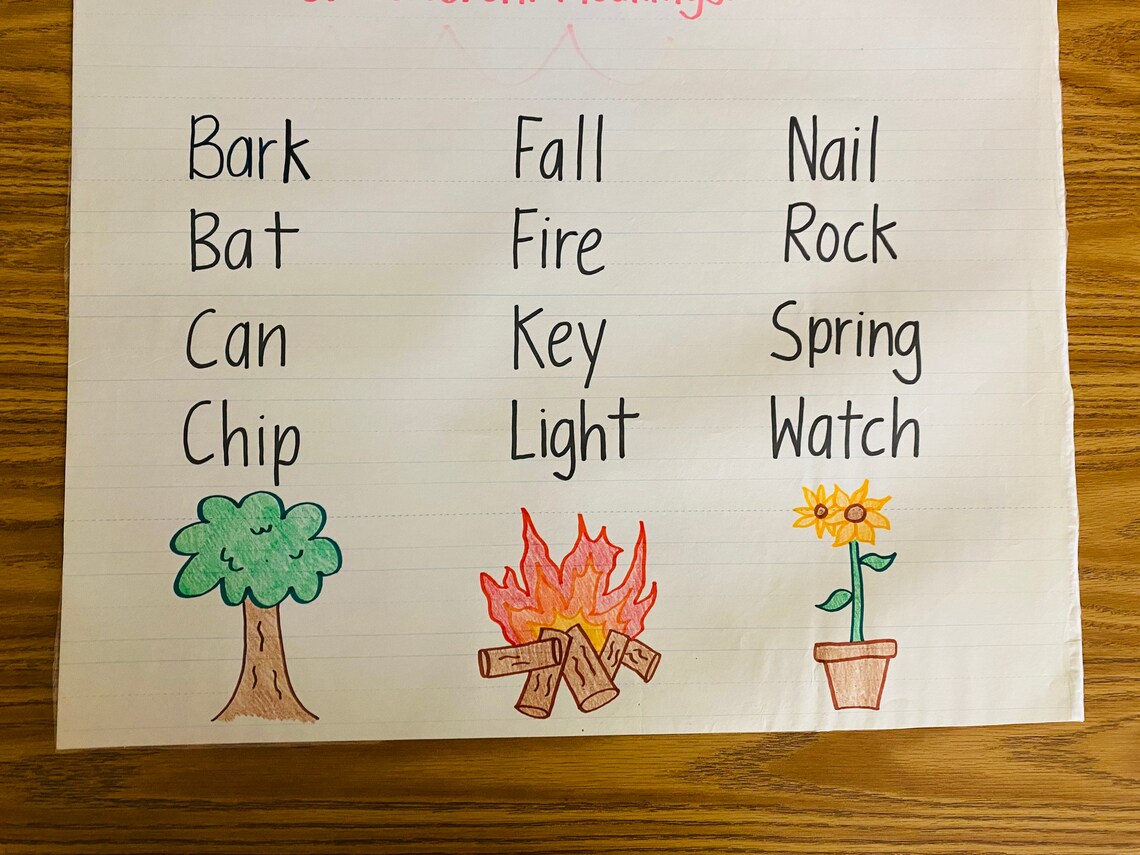 Meanings.
Bark
Bat
Can
Chip
Fall
Fire
Key
Light
Nail
Rock
Spring
Watch